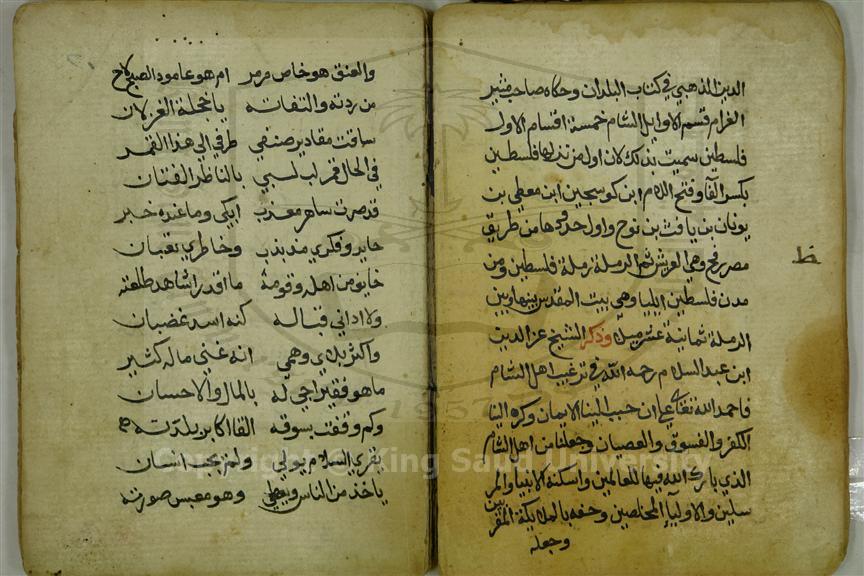 الدين الذهبي في كتاب البلدان وحكاه صاحب مثير
الغرام قسم الاوايل الشام خمسة اقسام الاول
فلسطين سميت بذلك لان اول من نزلها فلسطين
بكسر الفا وفتح اللام ابن كوسجين ابن معطي بن
يونان بن يافث بن نوح واول حدودها من طريق
مصر رفح وهي العريش ثم الرملة رملة فلسطين ومن
مدن فلسطين ايليا وهي بيت المقدس بينها وبين
الرملة ثمانية عشر ميل وذكر الشيخ عز الدين
ابن عبد السلام رحمه الله في ترغيب اهل الشام
فاحمد الله تعالى على ان حبب الينا الايمان وكره الينا
الكفر والفسوق والعصيان وجعلنا من اهل الشام
الذي بارك الله فيها للعالمين واسكنه الانبيا والمر
سلين والاوليآ المخلصين وحفه بالملايكة المقربين
وجعله
ظ
والعنق هو خاص مرمر ام هو عامود الصبح لاح
من ردته والتفاته يا خجلة الغزلان
ساقت مقادير صنفي طرفي الى هذا القمر
في الحال قمر لب لبي بالناظر الفتان
قد صرت ساهر معذب ابكي وما عنده خبر
حاير وفكري مذبذب وخاطري تعبان
خايف من اهله وقومه ما اقدر اشاهد طلعته
ولا اداني قباله كنه اسد غضبان
واكثر بلاي وهمي انه غني ماله كثير
ماهو فقير اجي له بالمال والاحسان
وكم وقفت بسوقه القا اكابر بلدته
يقري السلام يولي ولم يجب انسان
ياخذ من الناس ويعطي وهو معبس صورته
Copyright © King Saud University
1957